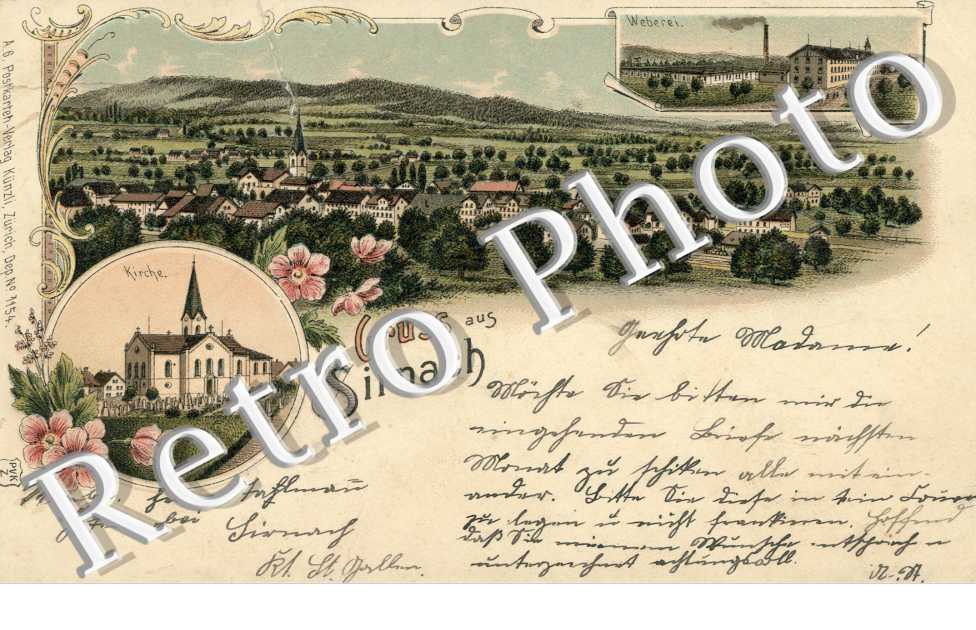 Weberei.
A.G. Postkarten-Verlag Künzli, Zürich, Dep. No 1154.
Kirche.
Gruss aus
Sirnach
PVK
Z
Retro Photo
Geehrte Madame!
Möchte Sie bitten mir die
eingehenden Briefe nächsten
Monat zu schiken alle mitein-
ander. Bitte Sie diese in ein Couvert
zu legen u nicht frankieren. Hoffend
daß Sie meinem Wunsche entsprechen
unterzeichnet achtungsvoll.
A. St.
bei Sirnach
Kt. St. Gallen.